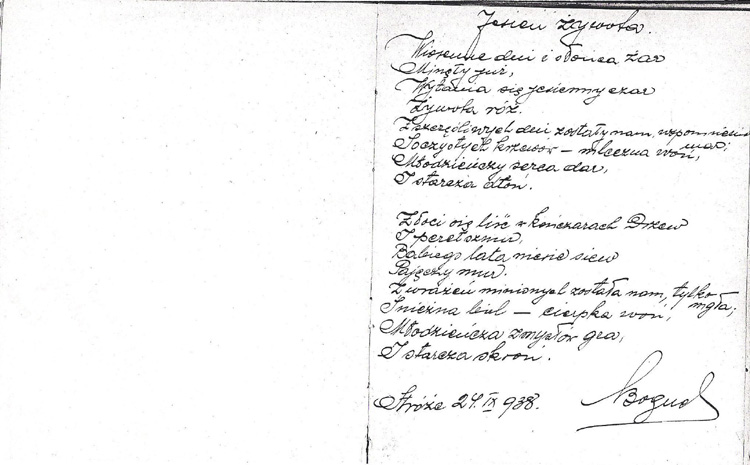 Jesień żywota.
Wiosenne dni i słońca żar
Minęły już,
Wyłania się jesienny czar
Żywota róż.
Z szczęśliwych dni zostały nam, wspomnienia
mar;
Soczystych krzewów – mleczna woń,
Młodzieńczy serca dar,
I starcza dłoń.
Złoci się liść w kończarach Drzew
I pereł sznur,
Babiego lata niesie siew
Pajęczy mur.
Z wrażeń minionych została nam, tylko
mgła;
Śnieżna biel – cierpka woń,
Młodzieńcza zmysłów gra,
I starcza skroń.
Stróże 24. IX 938.